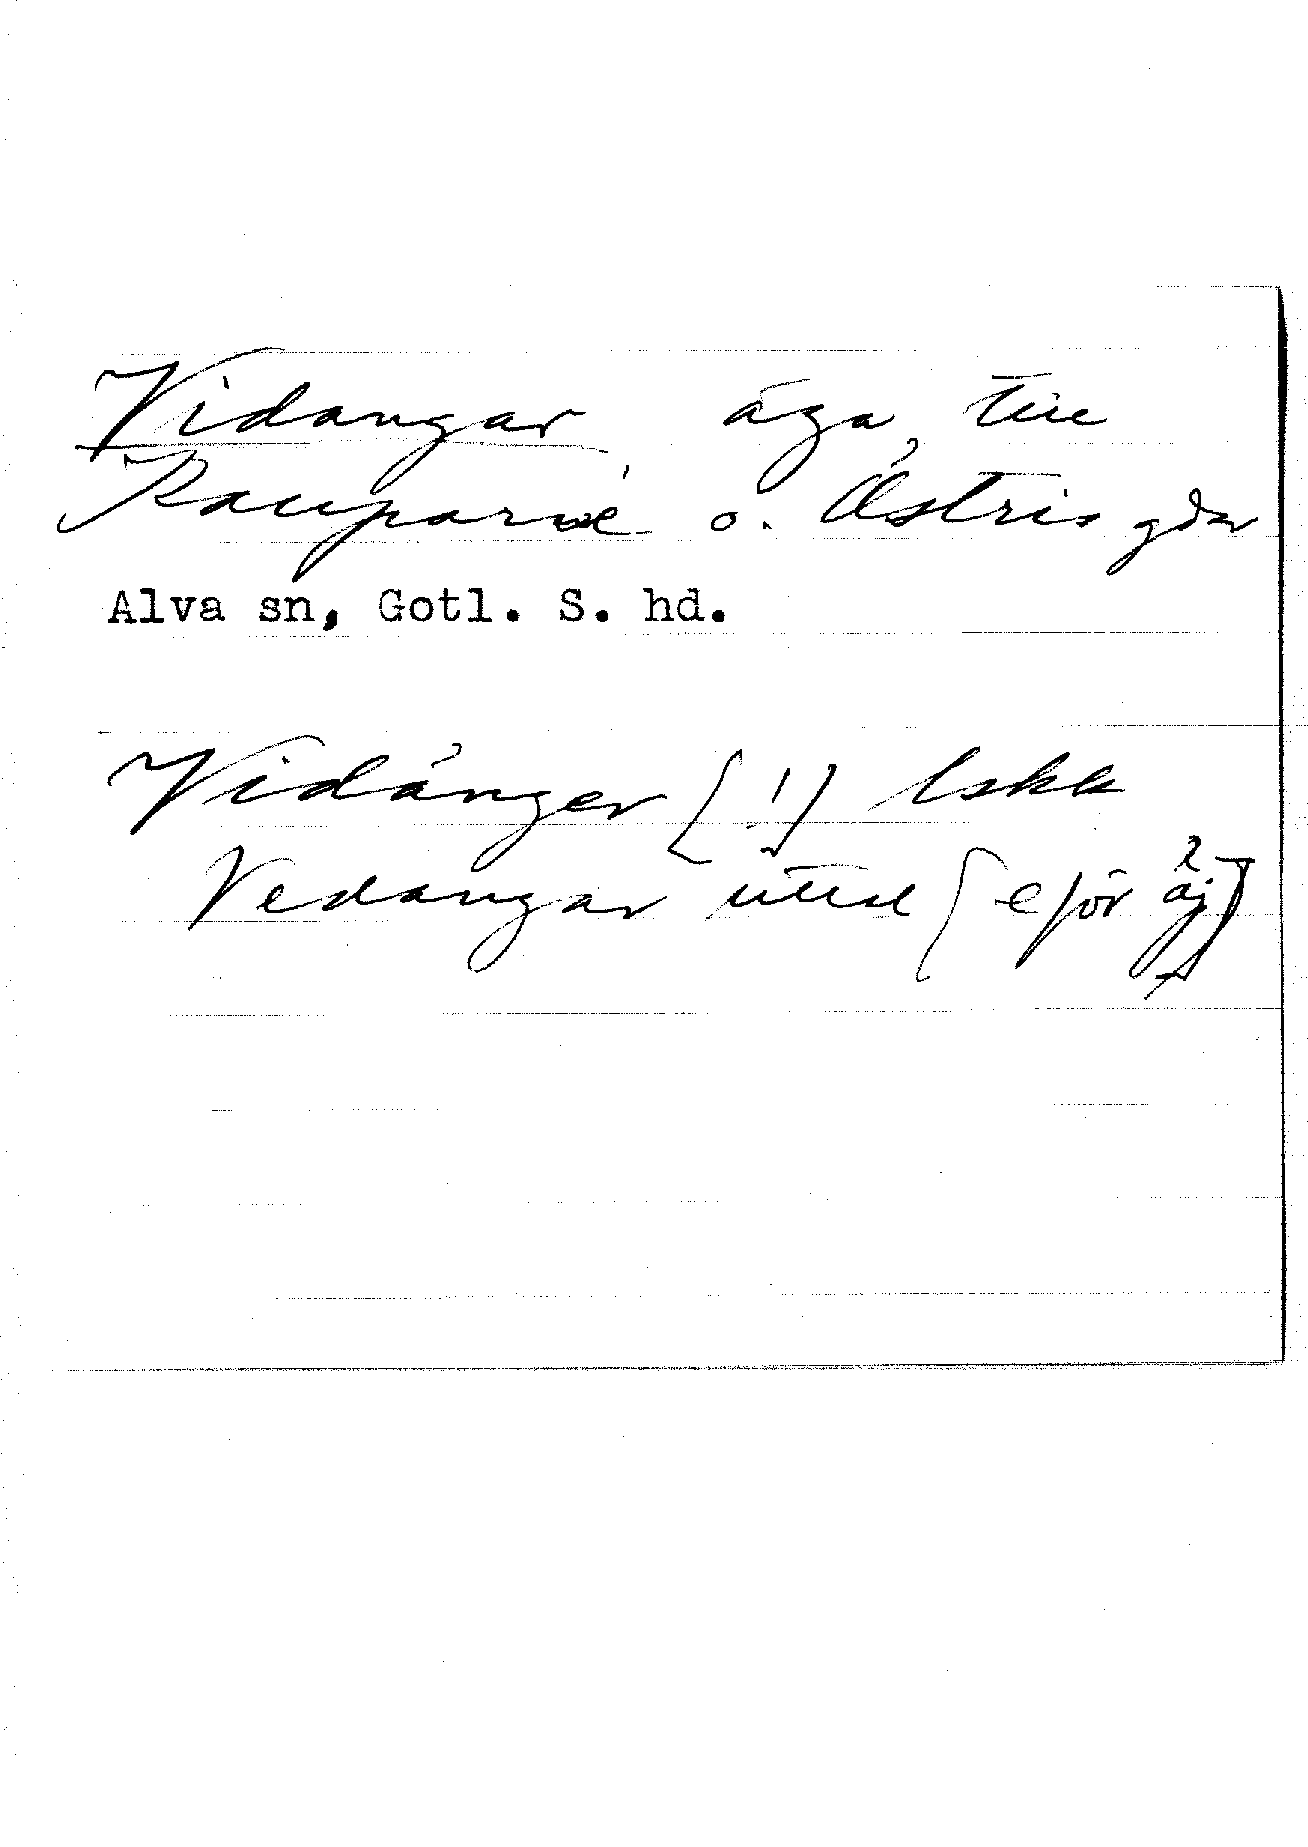 Vidangar äga till
Rangarve o. Östris gdar
Alva sn, Gotl. S. hd.
Vidånger [!] lskk
Vedangar uttal [e för äj]